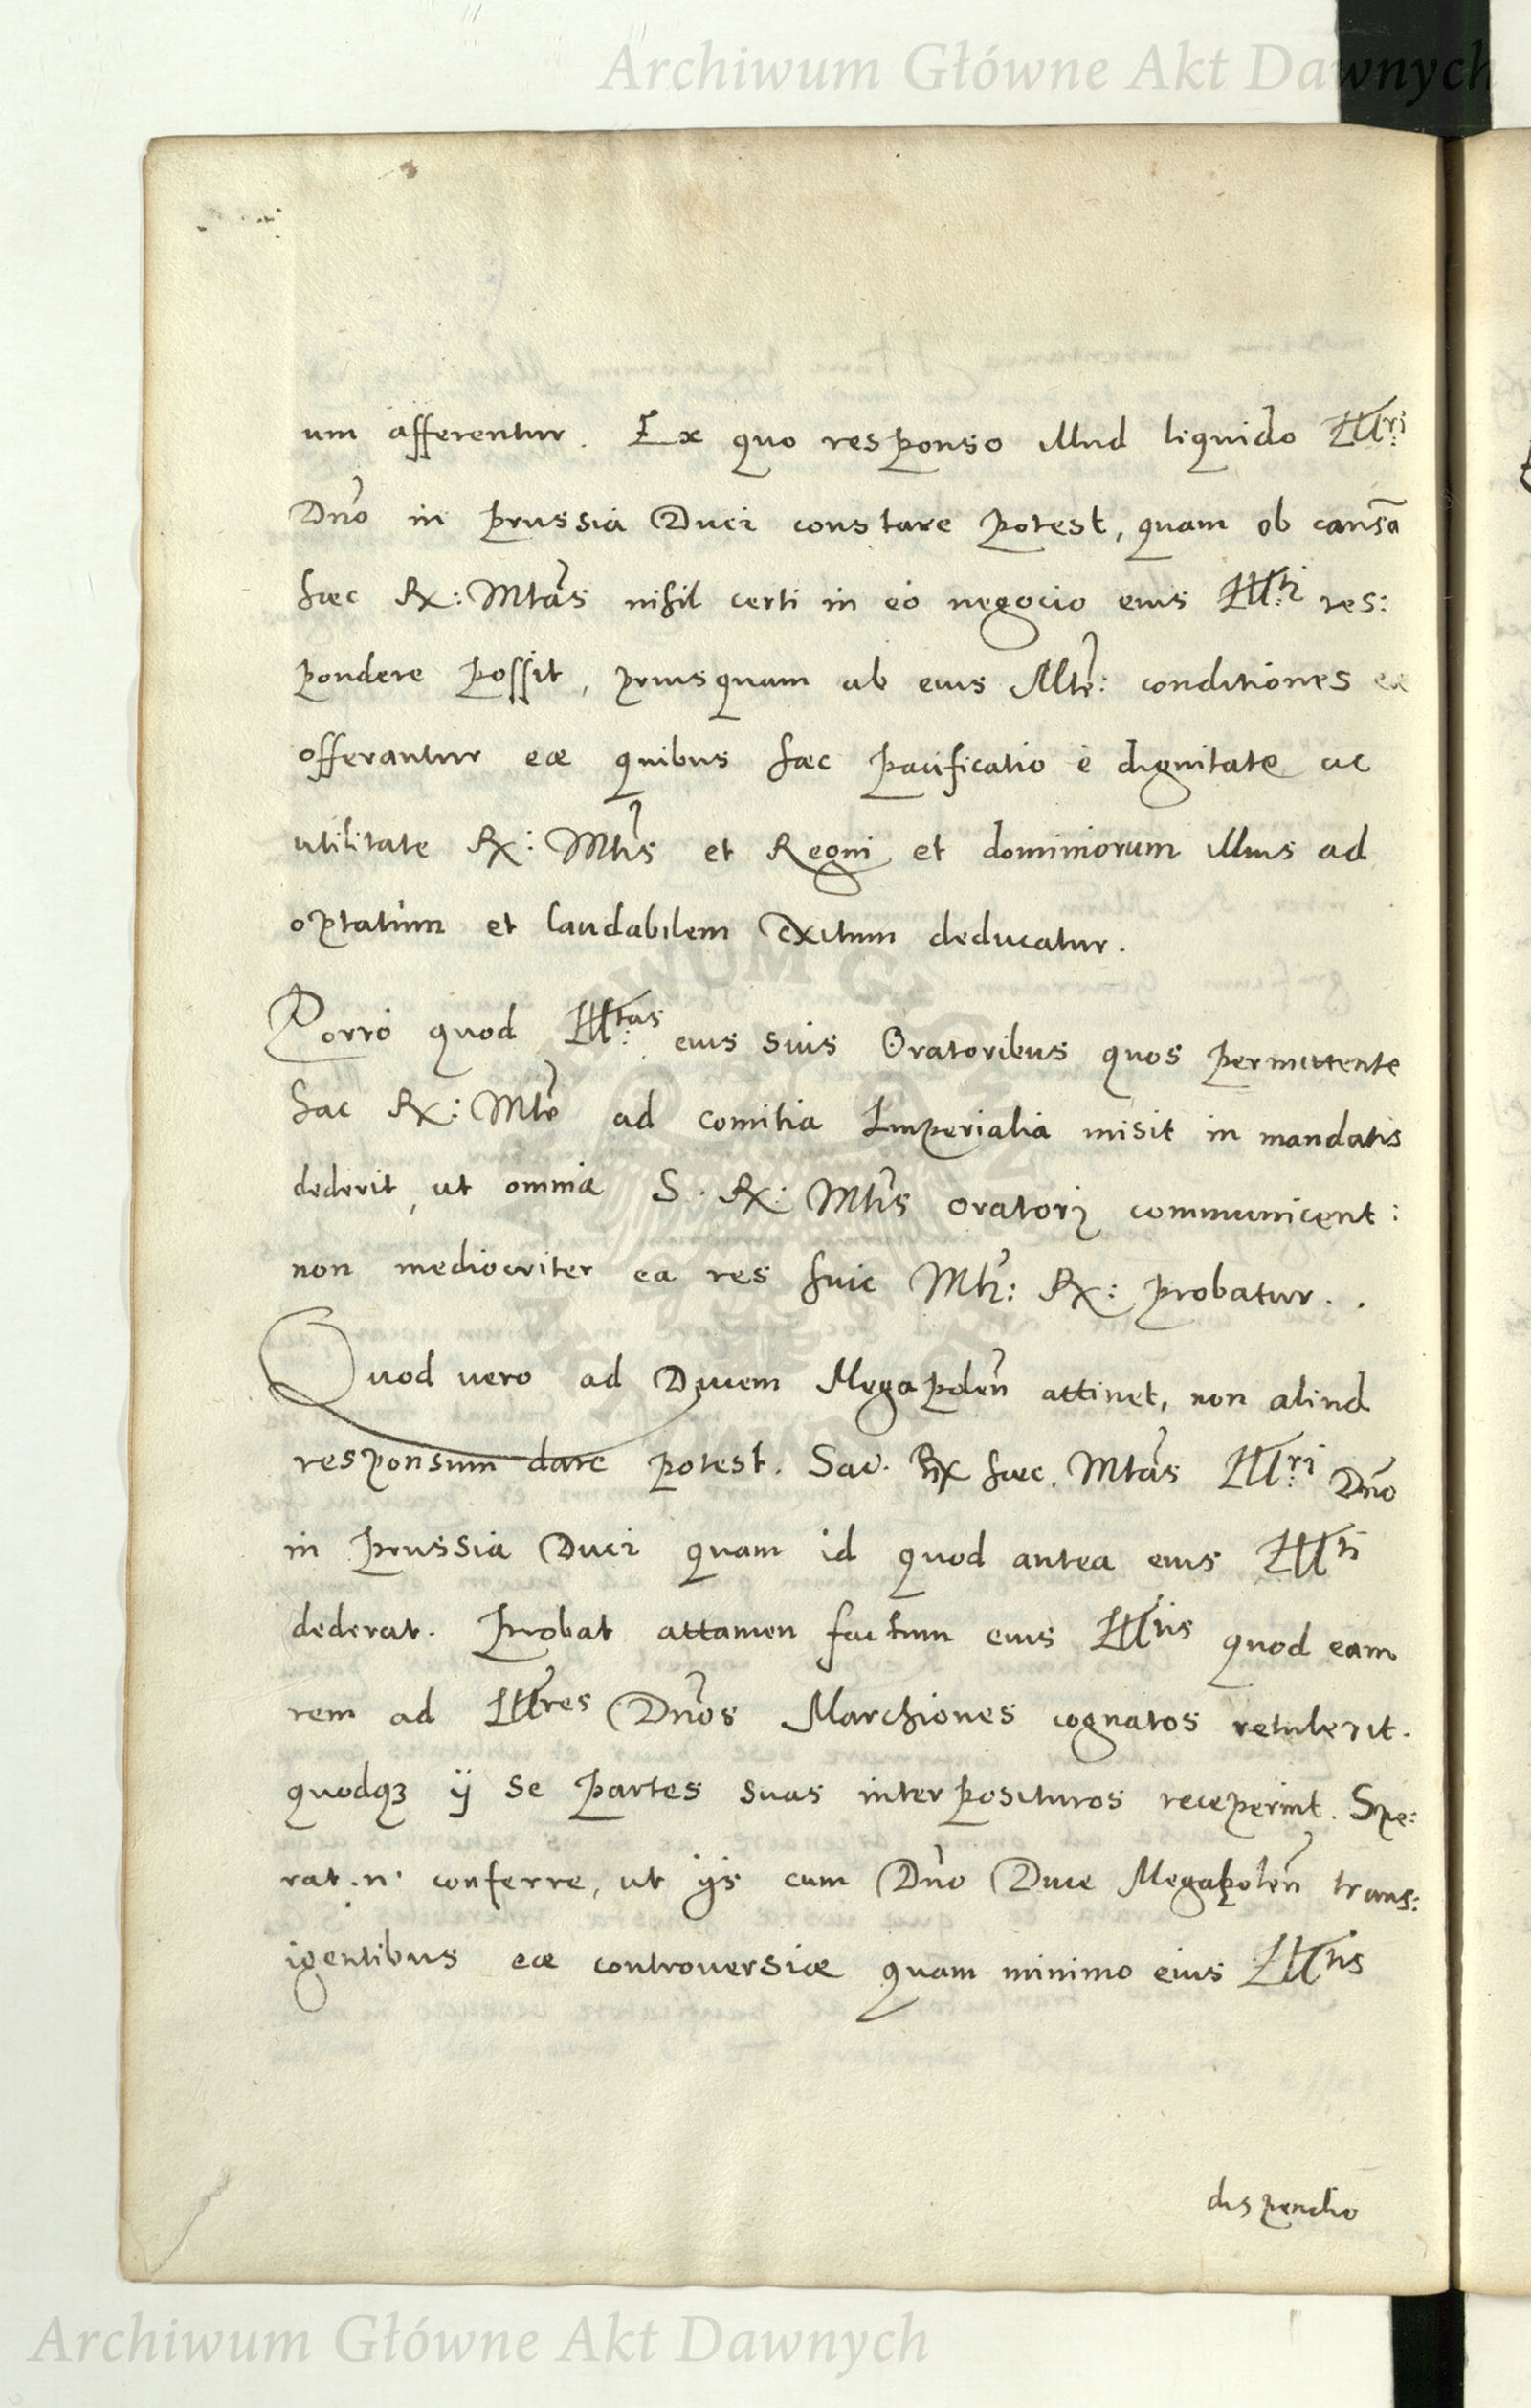 Archiwum Główne Akt Dawnych
um afferentur. Ex quo responso illud liquido Ill:ri
Dno in prussia Duci constare potest, quam ob causã
haec Rx: Mtas nihil certi in eo negocio eius Ill:ti res:
pondere possit, priusquam ab eius Mte: conditiones
offerantur eae quibus haec pacificatio è dignitate ac
utilitate Rx: Mtis et Regni et dominiorum illius ad
optatum et laudabilem exitum deducatur.
Porrò quod Ill:tas eius suis Oratoribus quos permittente
hac Rx: Mte ad comitia Imperialia misit in mandatis
dederit, ut omnia S. Rx: Mtis oratori communicent:
non mediocriter ea res huic Mti: Rx: probatur..
Quod vero ad Ducem Megapolen attinet, non aliud
responsum dare potest. Sac. Rx haec. Mtas Ill:ri Dno
in prussia Duci quam id quod antea eius Illti
dederat. Probat attamen factum eius Illtis quod eam
rem ad Illres Dnos Marchiones cognatos retulerit.
quodq3 ÿ se partes suas interposituros receperint. Spe:
rat.n. conferre, ut ÿs cum Dno Duce Megapolen trans:
igentibus eae controversiae quam minimo eius Illtis
dispendio
Archiwum Główne Akt Dawnych